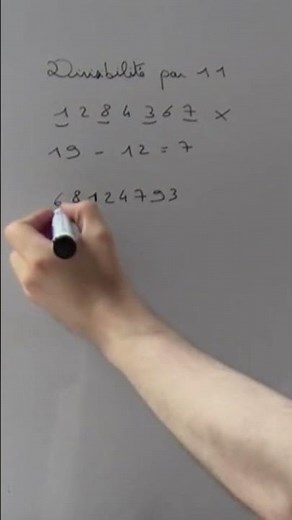 Divisibilité par 11
1284367 x
19 - 12 = 7
68124793